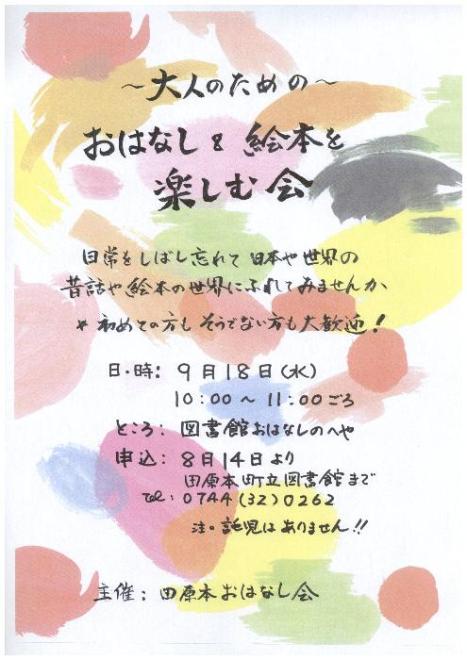 ～大人のための～
おはなし&絵本を
楽しむ会
日常をしばし忘れて日本や世界の
昔話や絵本の世界にふれてみませんか
*初めての方もそうでない方も大歓迎!
日・時: 9月18日(水)
10:00～11:00ごろ
ところ: 図書館おはなしのへや
申込: 8月14日より
田原本町立図書館まで
tel: 0744(32)0262
注。託児はありません!!
主催: 田原本おはなし会